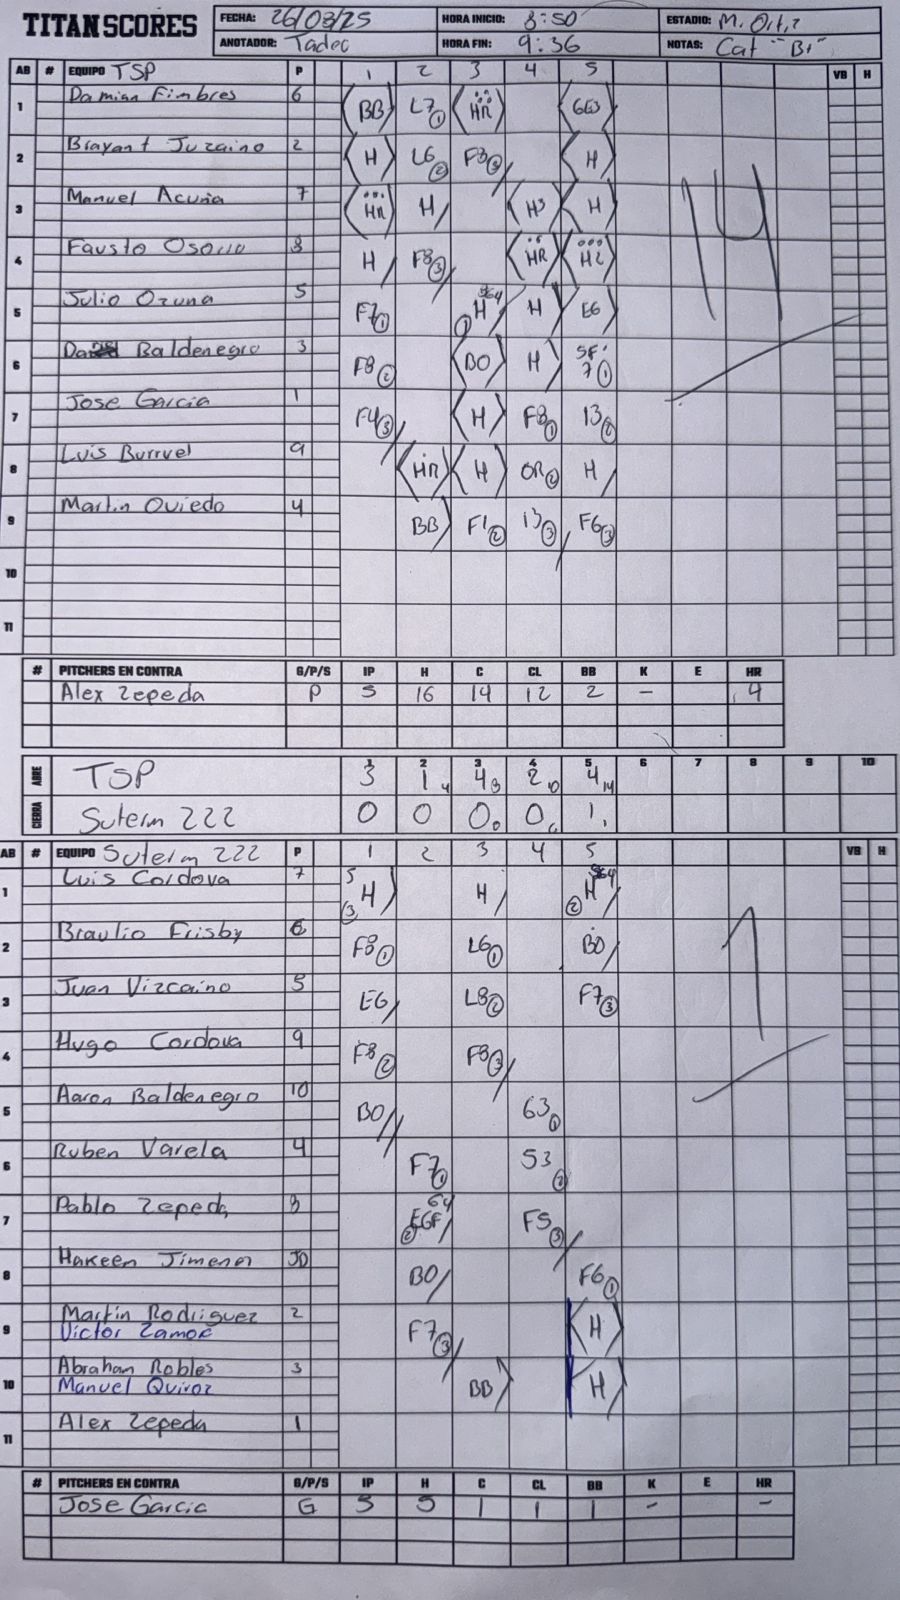 TITAN SCORES
FECHA: 26/03/25 HORA INICIO: 8:50 ESTADIO: M. Ortiz
ANOTADOR: Tadeo HORA FIN: 9:36 NOTAS: Cat "B1"
AB # EQUIPO TSP P 1 2 3 4 5 VB H
1 Damian Fimbres 6 BB L7① HR 6E3
2 Brayant Juzaino 2 H L6② F3③ H
3 Manuel Acuña 7 HR H H3 H
4 Fausto Osorio 8 H F8③ HR H2
5 Julio Ozuna 5 F7① H 564 H E6
6 Baldenegro 3 F8② BO H SF 7①
7 Jose Garcia 1 F4③ H F8① 13②
8 Luis Burruel 9 HR H OR② H
9 Martin Oviedo 4 BB F1② 13③ F6③
10
11
14
# PITCHERS EN CONTRA G/P/S IP H C CL BB K E HR
Alex Zepeda P 5 16 14 12 2 - 4
1 2 3 4 5 6 7 8 9 10
ABRE TSP 3 1 4 4 8 2 10 4 14
CIERRA Suterm 222 0 0 0 0 1
AB # EQUIPO Suterm 222 P 1 2 3 4 5 VB H
1 Luis Cordova 7 5 H ③ H ② H 564
2 Braulio Frisby 6 F8① L6① BO
3 Juan Vizcaino 5 E6 L8② F7③
4 Hugo Cordova 9 F8② F8③
5 Aaron Baldenegro 10 BO 63①
6 Ruben Varela 4 F7① 53②
7 Pablo Zepeda 8 64 ② EGF F5③
8 Hakeen Jimenez JD BO F6①
9 Martin Rodriguez 2 F7③ H
Victor Zamor
10 Abrahan Robles 3 BB H
Manuel Quiroz
11 Alex Zepeda 1
1
# PITCHERS EN CONTRA G/P/S IP H C CL BB K E HR
Jose Garcia G 5 5 1 1 1 - -